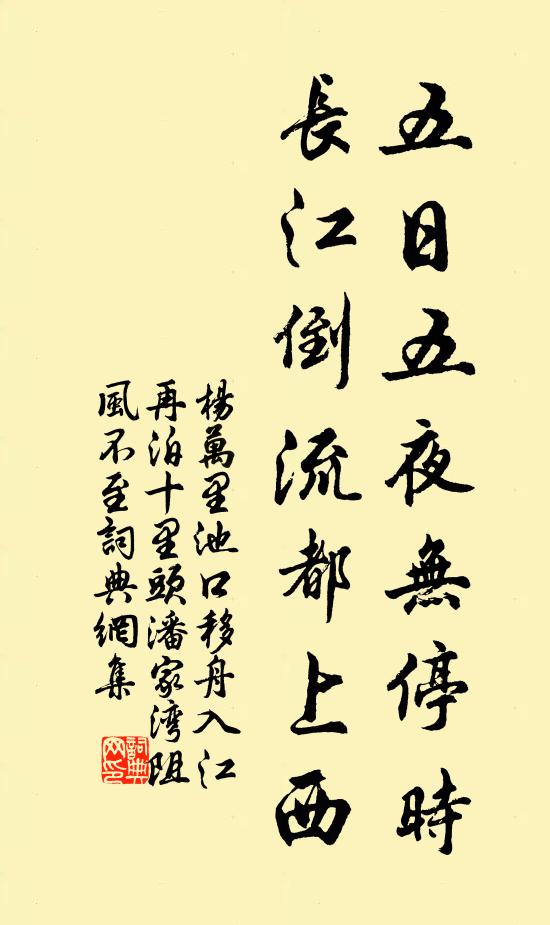 五日五夜無停時
長江倒流都上西
楊萬里池口移舟入江
再泊十里頭潘家灣阻
風不至詞典網集
詞典
网印